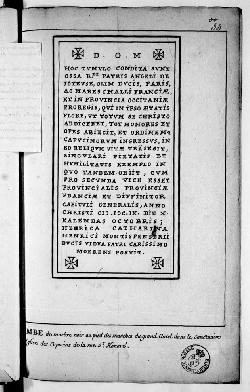 D. O. M
HOC TVMVLO CONDITA SVNT
OSSA R. PATRIS ANGELI DE
IOYEVSE, OLIM DVCIS, PARIS,
AC MARESCHALLI FRANCIÆ,
ET IN PROVINCIA OCCITANIÆ
PROREGIS, QVI IN IPSO ÆTATIS
FLORE, VT TOTVM SE CHRISTO
ADDICERET, TOT HONORES ET
OPES ABIECIT, ET ORDINEM
CAPVCINORVM INGRESSVS, IN
EO RELIQVÆ VITÆ TRANSEGIT,
SINGVLARI PIETATIS ET
HVMILITATIS EXEMPLO IN
QVO TANDEM OBIIT, CVM
PRO SECVNDA VICE ESSET
PROVINCIALIS PROVINCIÆ
FRANCIÆ ET DIFFINITOR
CAPITVLI GENERALIS, ANNO
CHRISTI
KALENDAS OCTOBRIS;
HENRICA CATHARINA
HENRICI MONTIS PENSERII
DVCIS VIDVA PATRI CARISSIMO
MOERENS POSVIT.
de marbre noir au pied du marches du grand Autel dans le
des Capucins de la rue St Honoré.